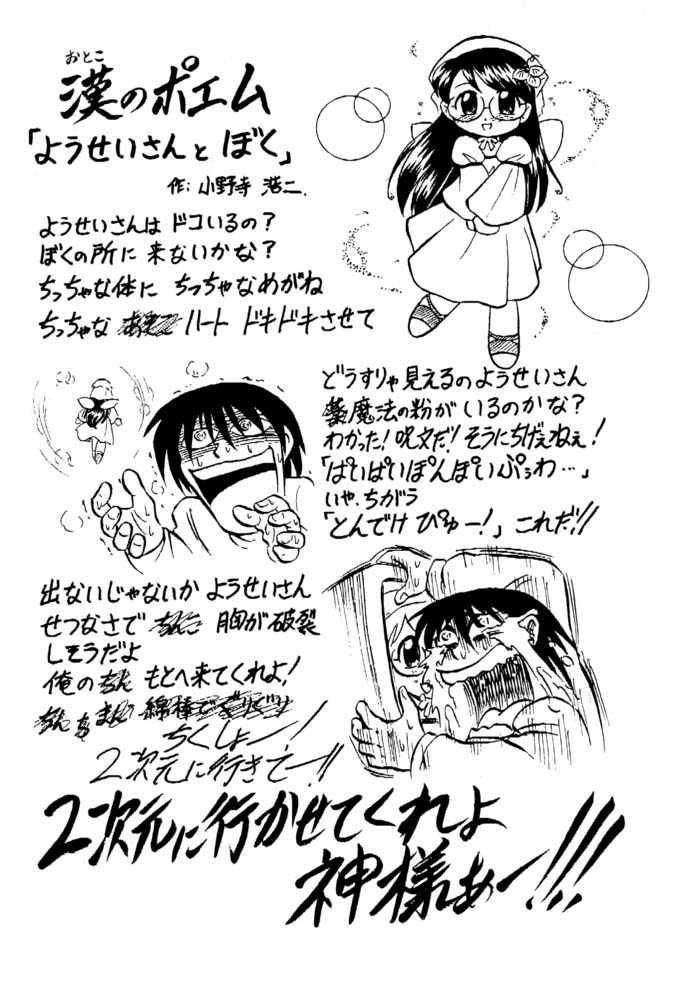 おとこ
漢のポエム
「ようせいさんと ぼく」
作: 小野寺 浩二.
ようせいさんは ドコいるの?
ぼくの所に 来ないかな?
ちっちゃな体に ちっちゃなめがね
ちっちゃな ハート ドキドキさせて
どうすりゃ見えるの ようせいさん
魔法の粉が いるのかな?
わかった! 呪文だ! そうにちげぇねぇ!
「ぱいぱいぽんぽいぷぅわ…」
いや、ちがう
「とんでけ ぴゅー!」 これだ!!
出ないじゃないか ようせいさん
せつなさで 胸が 破裂
しそうだよ
俺の もとへ来てくれよ!
綿棒で
ちくしょー!
2次元に行きてー!!
2次元に行かせてくれよ
神様ぁー!!!